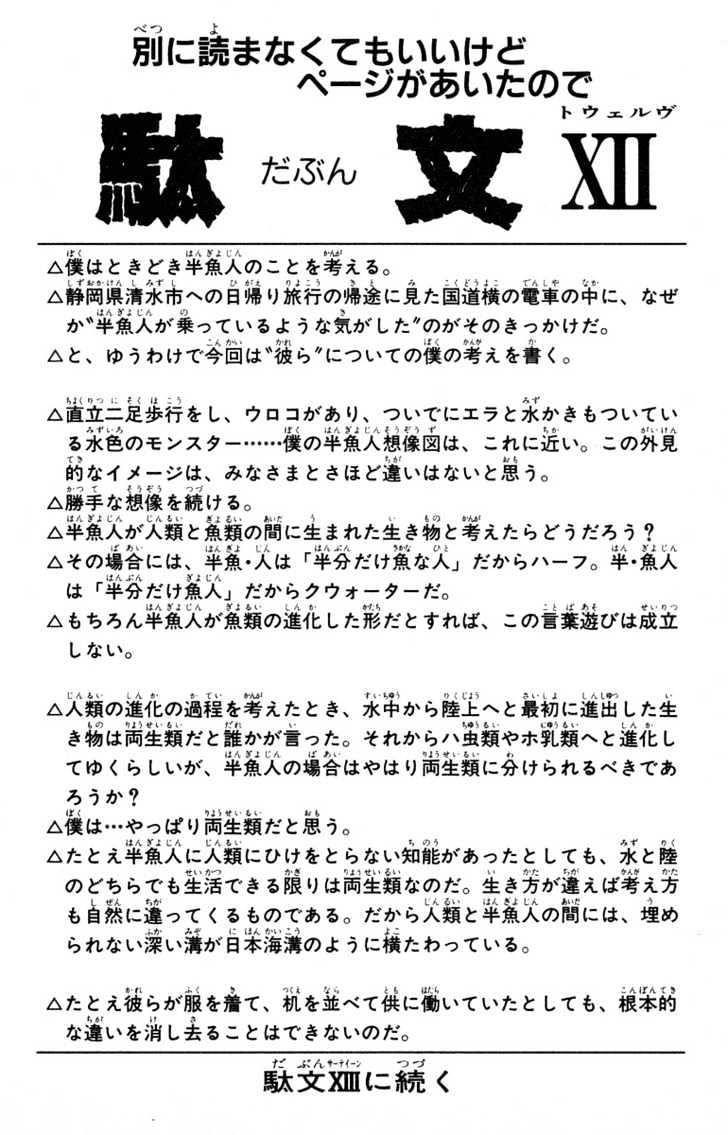 別に読まなくてもいいけど
ページがあいたので
駄文 だぶん XII
△僕はときどき半魚人のことを考える。
△静岡県清水市への日帰り旅行の帰途に見た国道横の電車の中に、なぜ
か〝半魚人が乗っているような気がした〟のがそのきっかけだ。
△と、ゆうわけで今回は〝彼ら〟についての僕の考えを書く。
△直立二足歩行をし、ウロコがあり、ついでにエラと水かきもついてい
る水色のモンスター……僕の半魚人想像図は、これに近い。この外見
的なイメージは、みなさまとさほど違いはないと思う。
△勝手な想像を続ける。
△半魚人が人類と魚類の間に生まれた生き物と考えたらどうだろう?
△その場合には、半魚・人は「半分だけ魚な人」だからハーフ。半・魚人
は「半分だけ魚人」だからクウォーターだ。
△もちろん半魚人が魚類の進化した形だとすれば、この言葉遊びは成立
しない。
△人類の進化の過程を考えたとき、水中から陸上へと最初に進出した生
き物は両生類だと誰かが言った。それからハ虫類やホ乳類へと進化し
てゆくらしいが、半魚人の場合はやはり両生類に分けられるべきであ
ろうか?
△僕は…やっぱり両生類だと思う。
△たとえ半魚人に人類にひけをとらない知能があったとしても、水と陸
のどちらでも生活できる限りは両生類なのだ。生き方が違えば考え方
も自然に違ってくるものである。だから人類と半魚人の間には、埋め
られない深い溝が日本海溝のように横たわっている。
△たとえ彼らが服を着て、机を並べて供に働いていたとしても、根本的
な違いを消し去ることはできないのだ。
駄文XIIIに続く